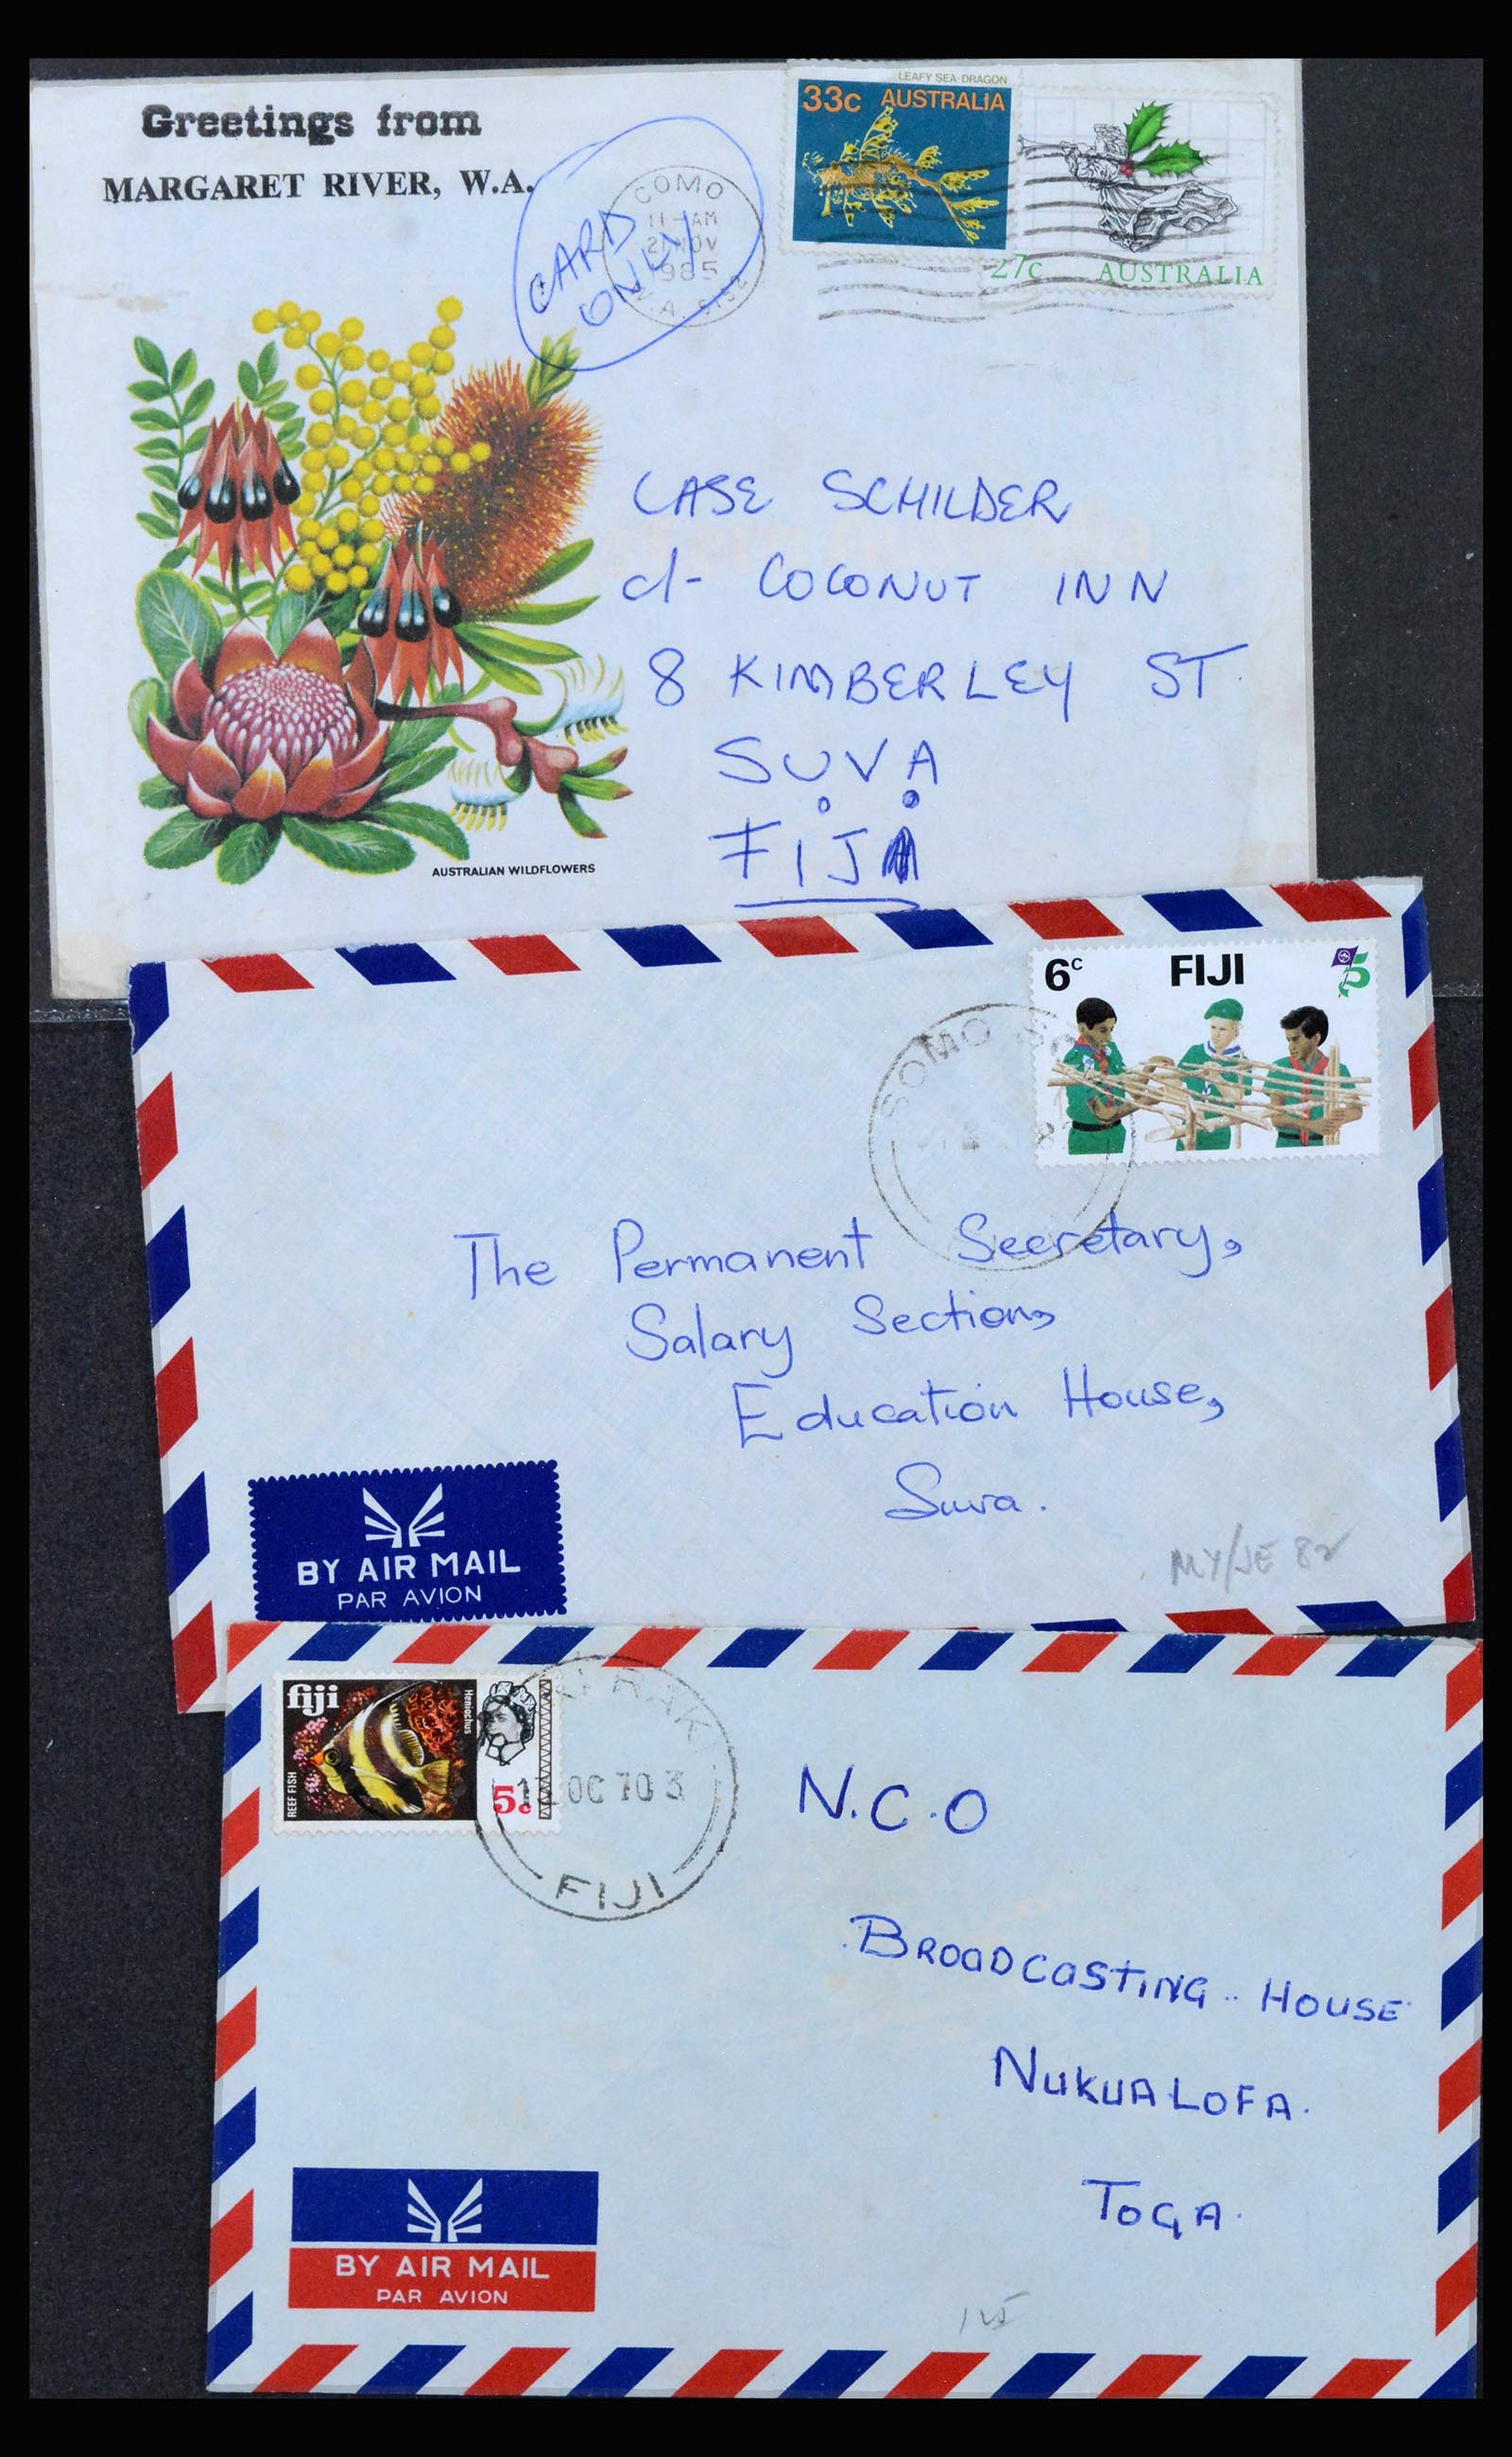 Greetings from
MARGARET RIVER, W.A.
CARD
ONLY
COMO
11 - AM
1985
LEAFY SEA-DRAGON
33c AUSTRALIA
27c AUSTRALIA
CASE SCHILDER
c/- COCONUT INN
8 KIMBERLEY ST.
SUVA
FIJI
AUSTRALIAN WILDFLOWERS
6c FIJI
SOMO SO
The Permanent Secretary,
Salary Section,
Education House,
Suva.
BY AIR MAIL
PAR AVION
MY/JE 82
fiji
Heniochus
REEF FISH
5d
RAKI
12 OC 70 3
FIJI
N.C.O
BROADCASTING HOUSE
NUKUALOFA.
TOGA.
BY AIR MAIL
PAR AVION